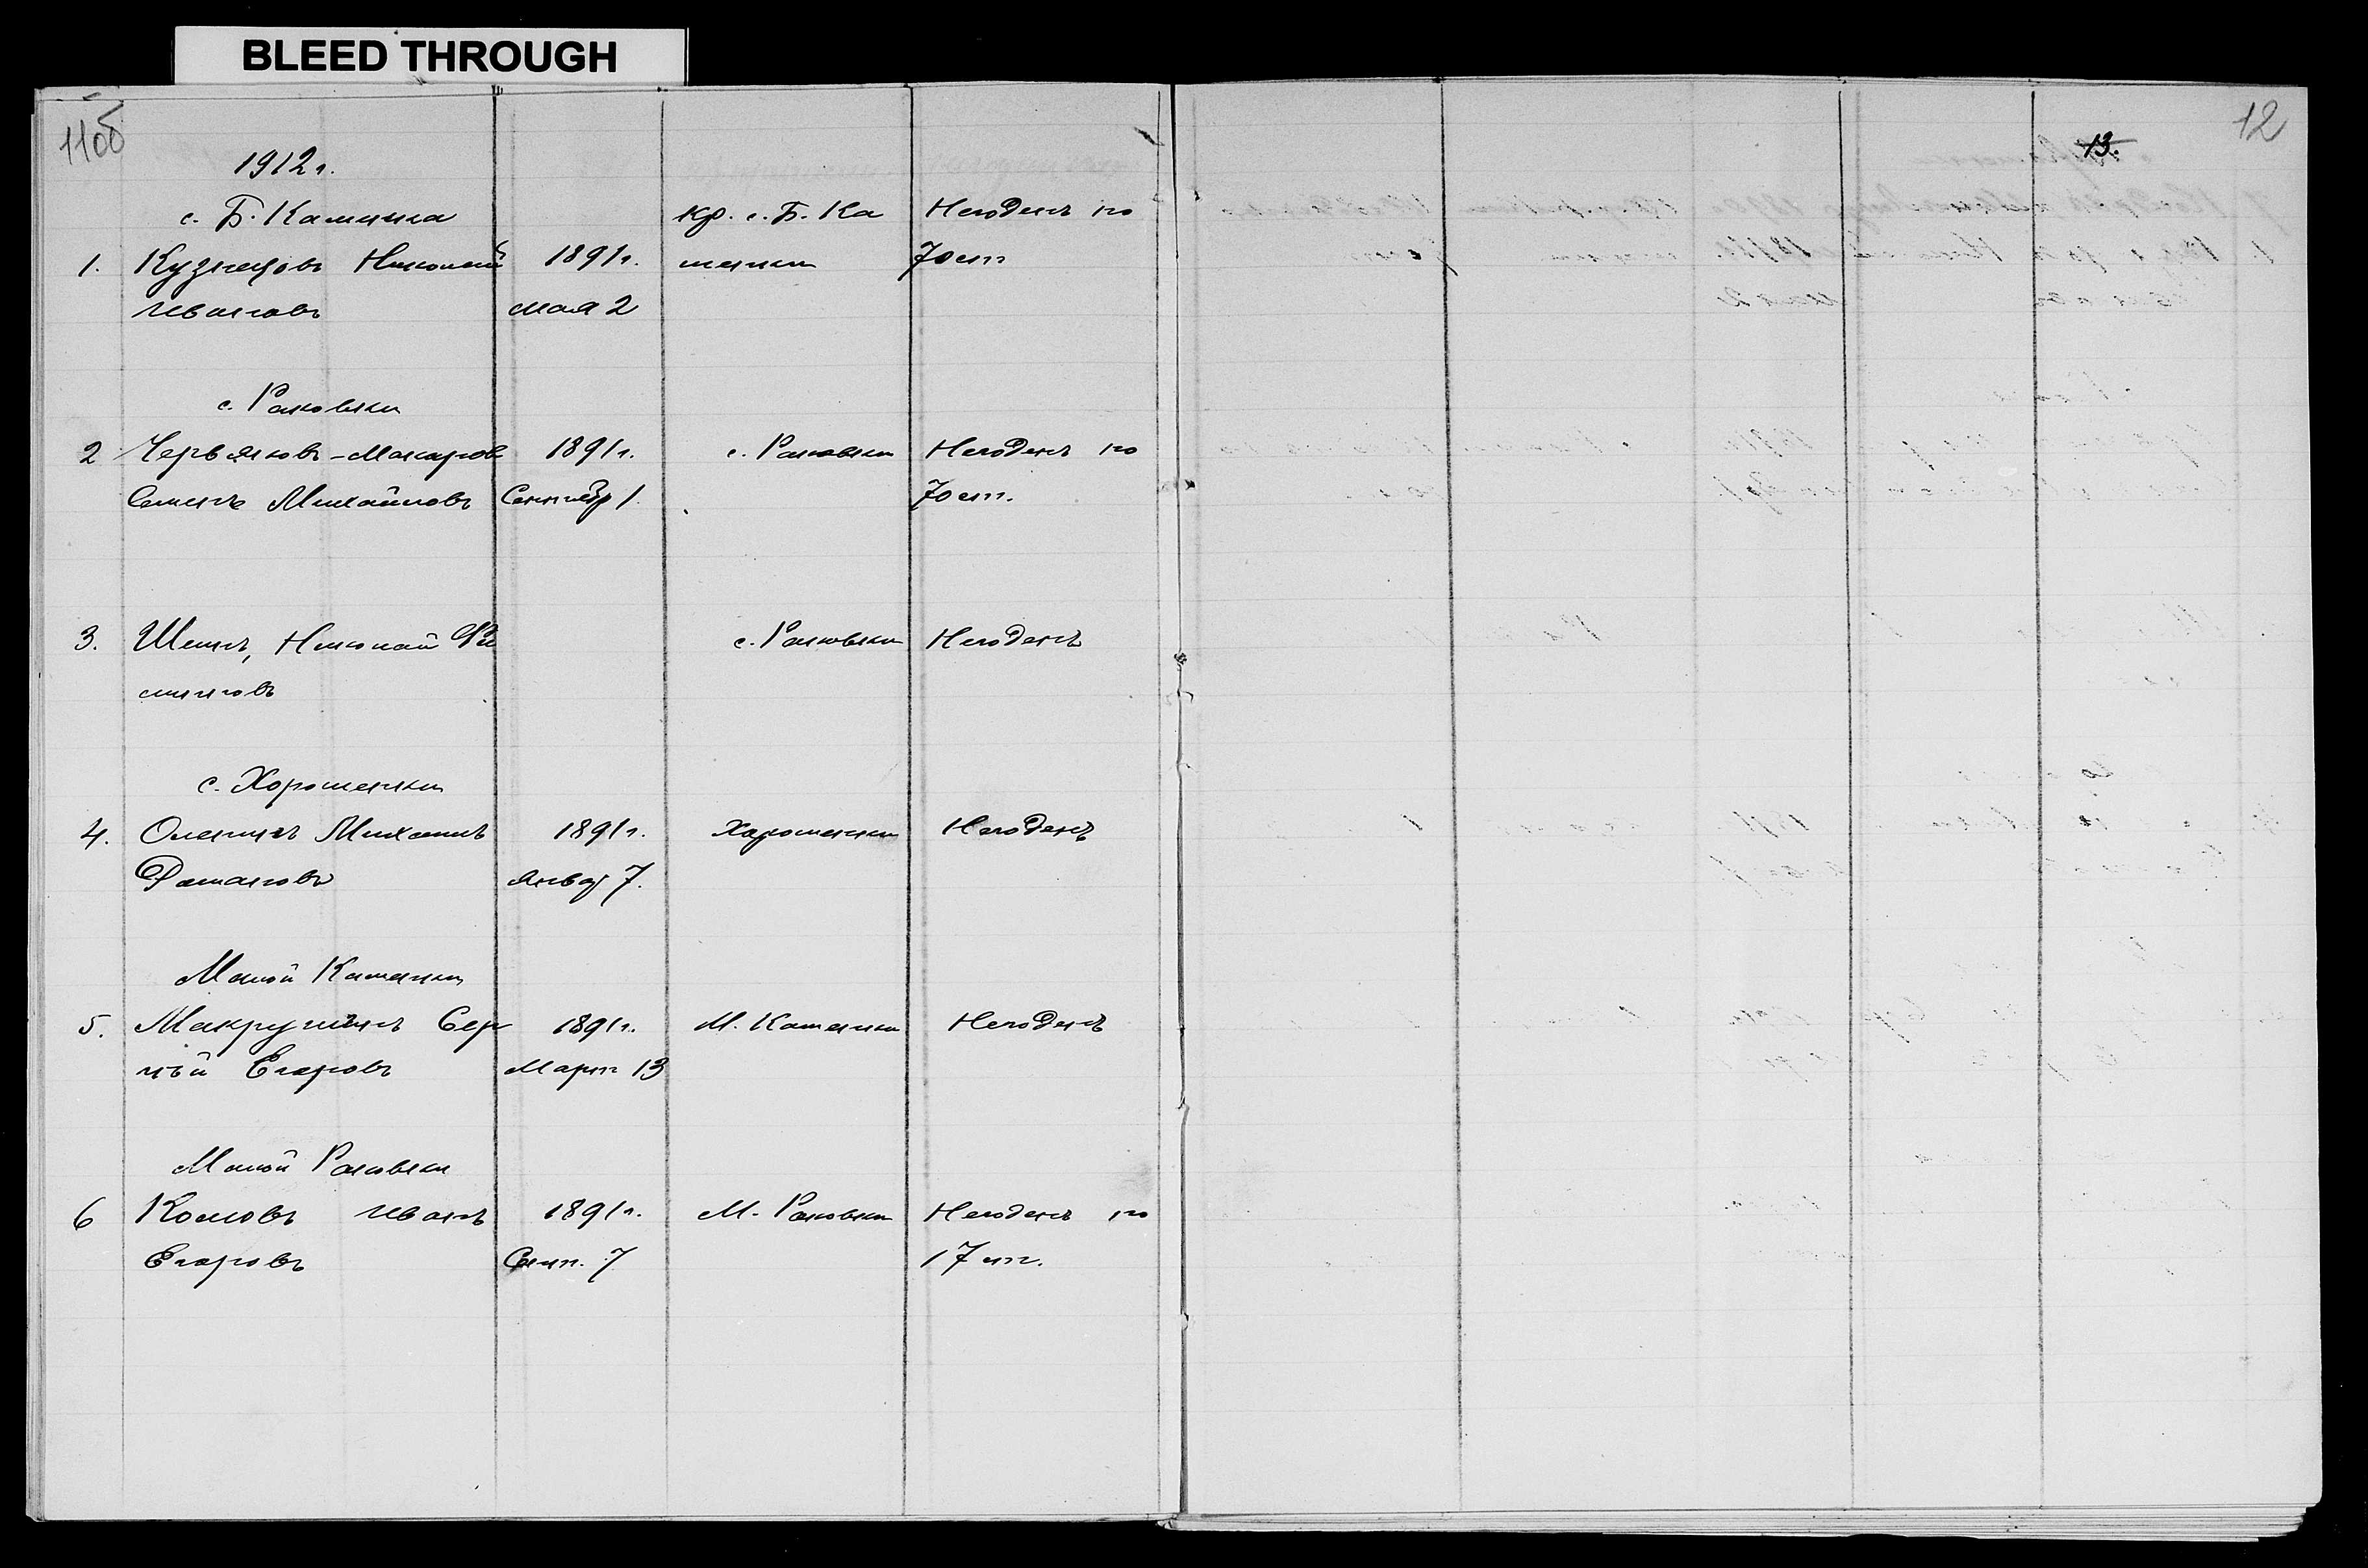 BLEED THROUGH
11об
12
13.
1912 г.
с. Б. Каменка
кр. с. Б. Ка
Негоденъ по
1. Кузнецовъ Николай 1891 г. менки 70 ст
Ивановъ мая 2
с. Раковки
2 Червяковъ-Макаровъ 1891 г. с. Раковки Негоденъ по
Семенъ Михайловъ Сентябр 1. 70 ст.
3. Шеинъ, Николай с. Раковки Негоденъ
с. Хорошенки
4. Оленинъ Михаилъ 1891 г. Хорошенки Негоденъ
Романовъ Январ 7.
Малой Каменки
5. Макрушинъ Сер 1891 г. М. Каменки Негоденъ
гѣй Егоровъ Март 13
Малой Раковки
6 Комовъ Иванъ 1891 г. М. Раковки Негоденъ по
Егоровъ Сент. 7 17 ст.